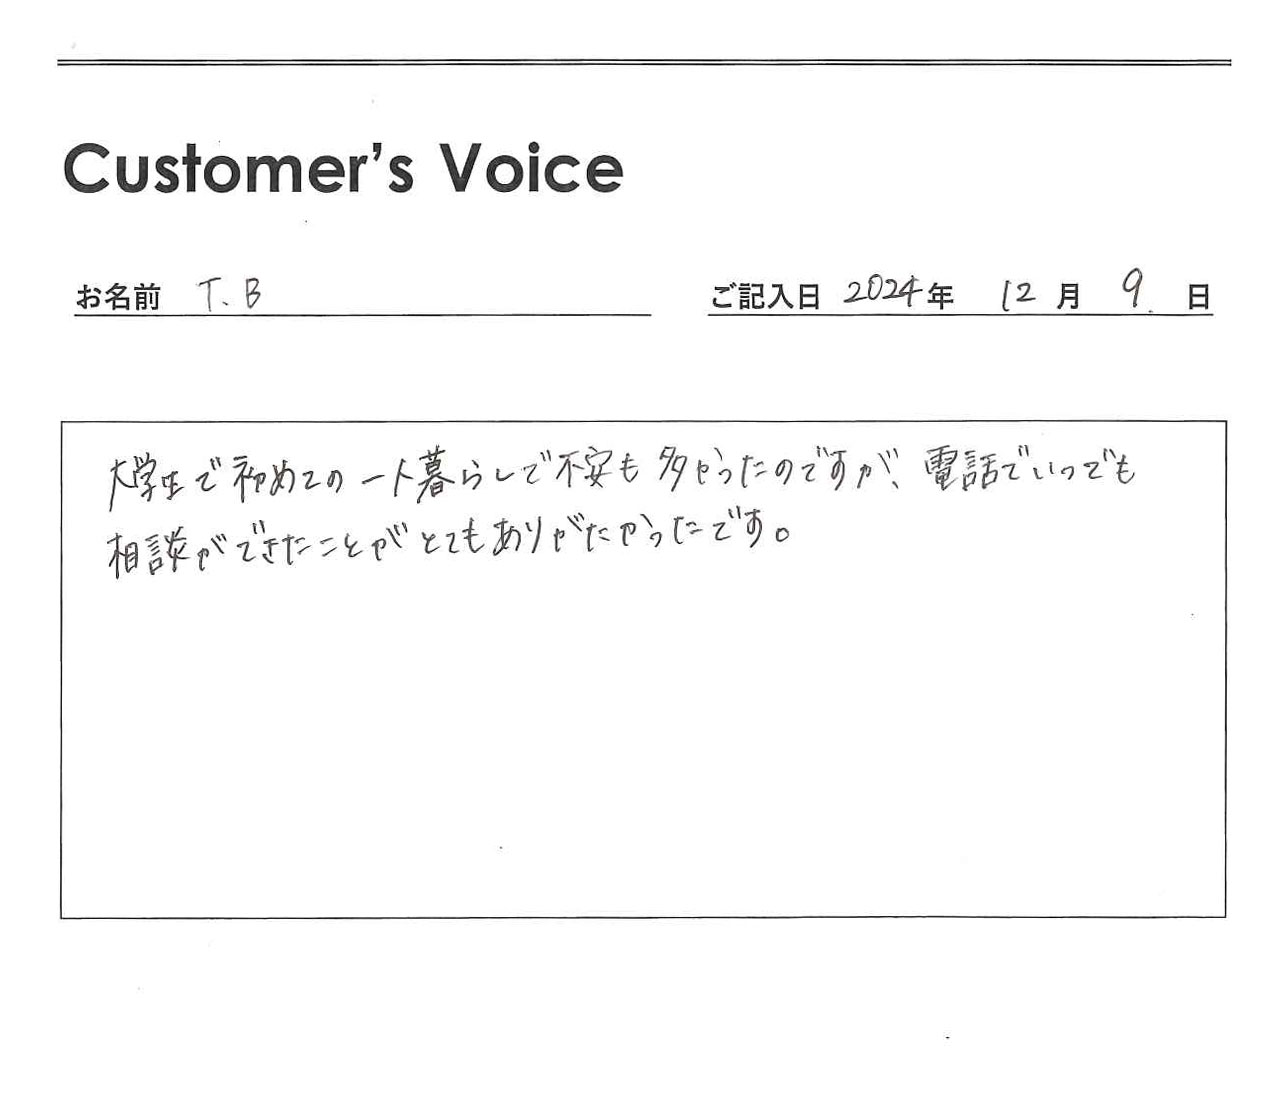 Customer's Voice
お名前 T.B ご記入日 2024年 12月 9日
大学生で初めての一人暮らしで不安も多かったのですが、電話でいつでも
相談ができたことがとてもありがたかったです。